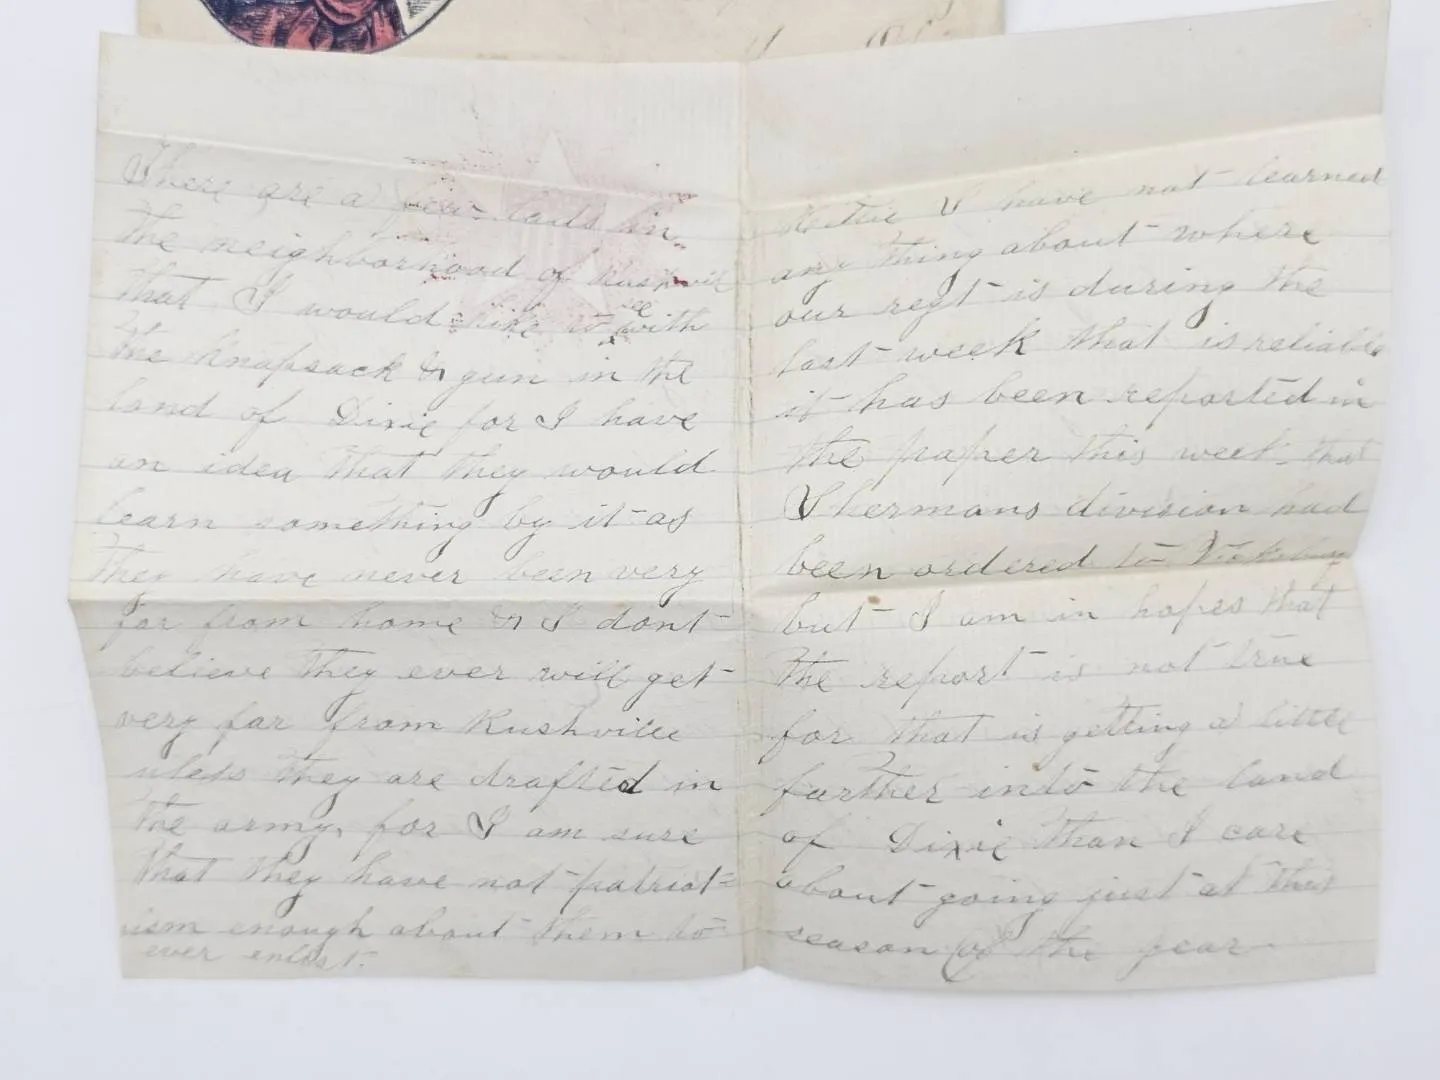 There are a few lads in
the neighborhood of Rushvil
that I would like to see with
the knapsack & gun in the
land of Dixie for I have
an idea that they would
learn something by it as
they have never been very
far from home & I dont
believe they ever will get
very far from Rushville
unless they are drafted in
the army, for I am sure
that they have not patriot=
ism enough about them to
ever enlist.
I have not learned
any thing about where
our regt is during the
last week that is reliable
it has been reported in
the paper this week that
Shermans division had
been ordered to Vicksburg
but I am in hopes that
the report is not true
for that is getting a little
further into the land
of Dixie than I care
about going just at this
season of the year